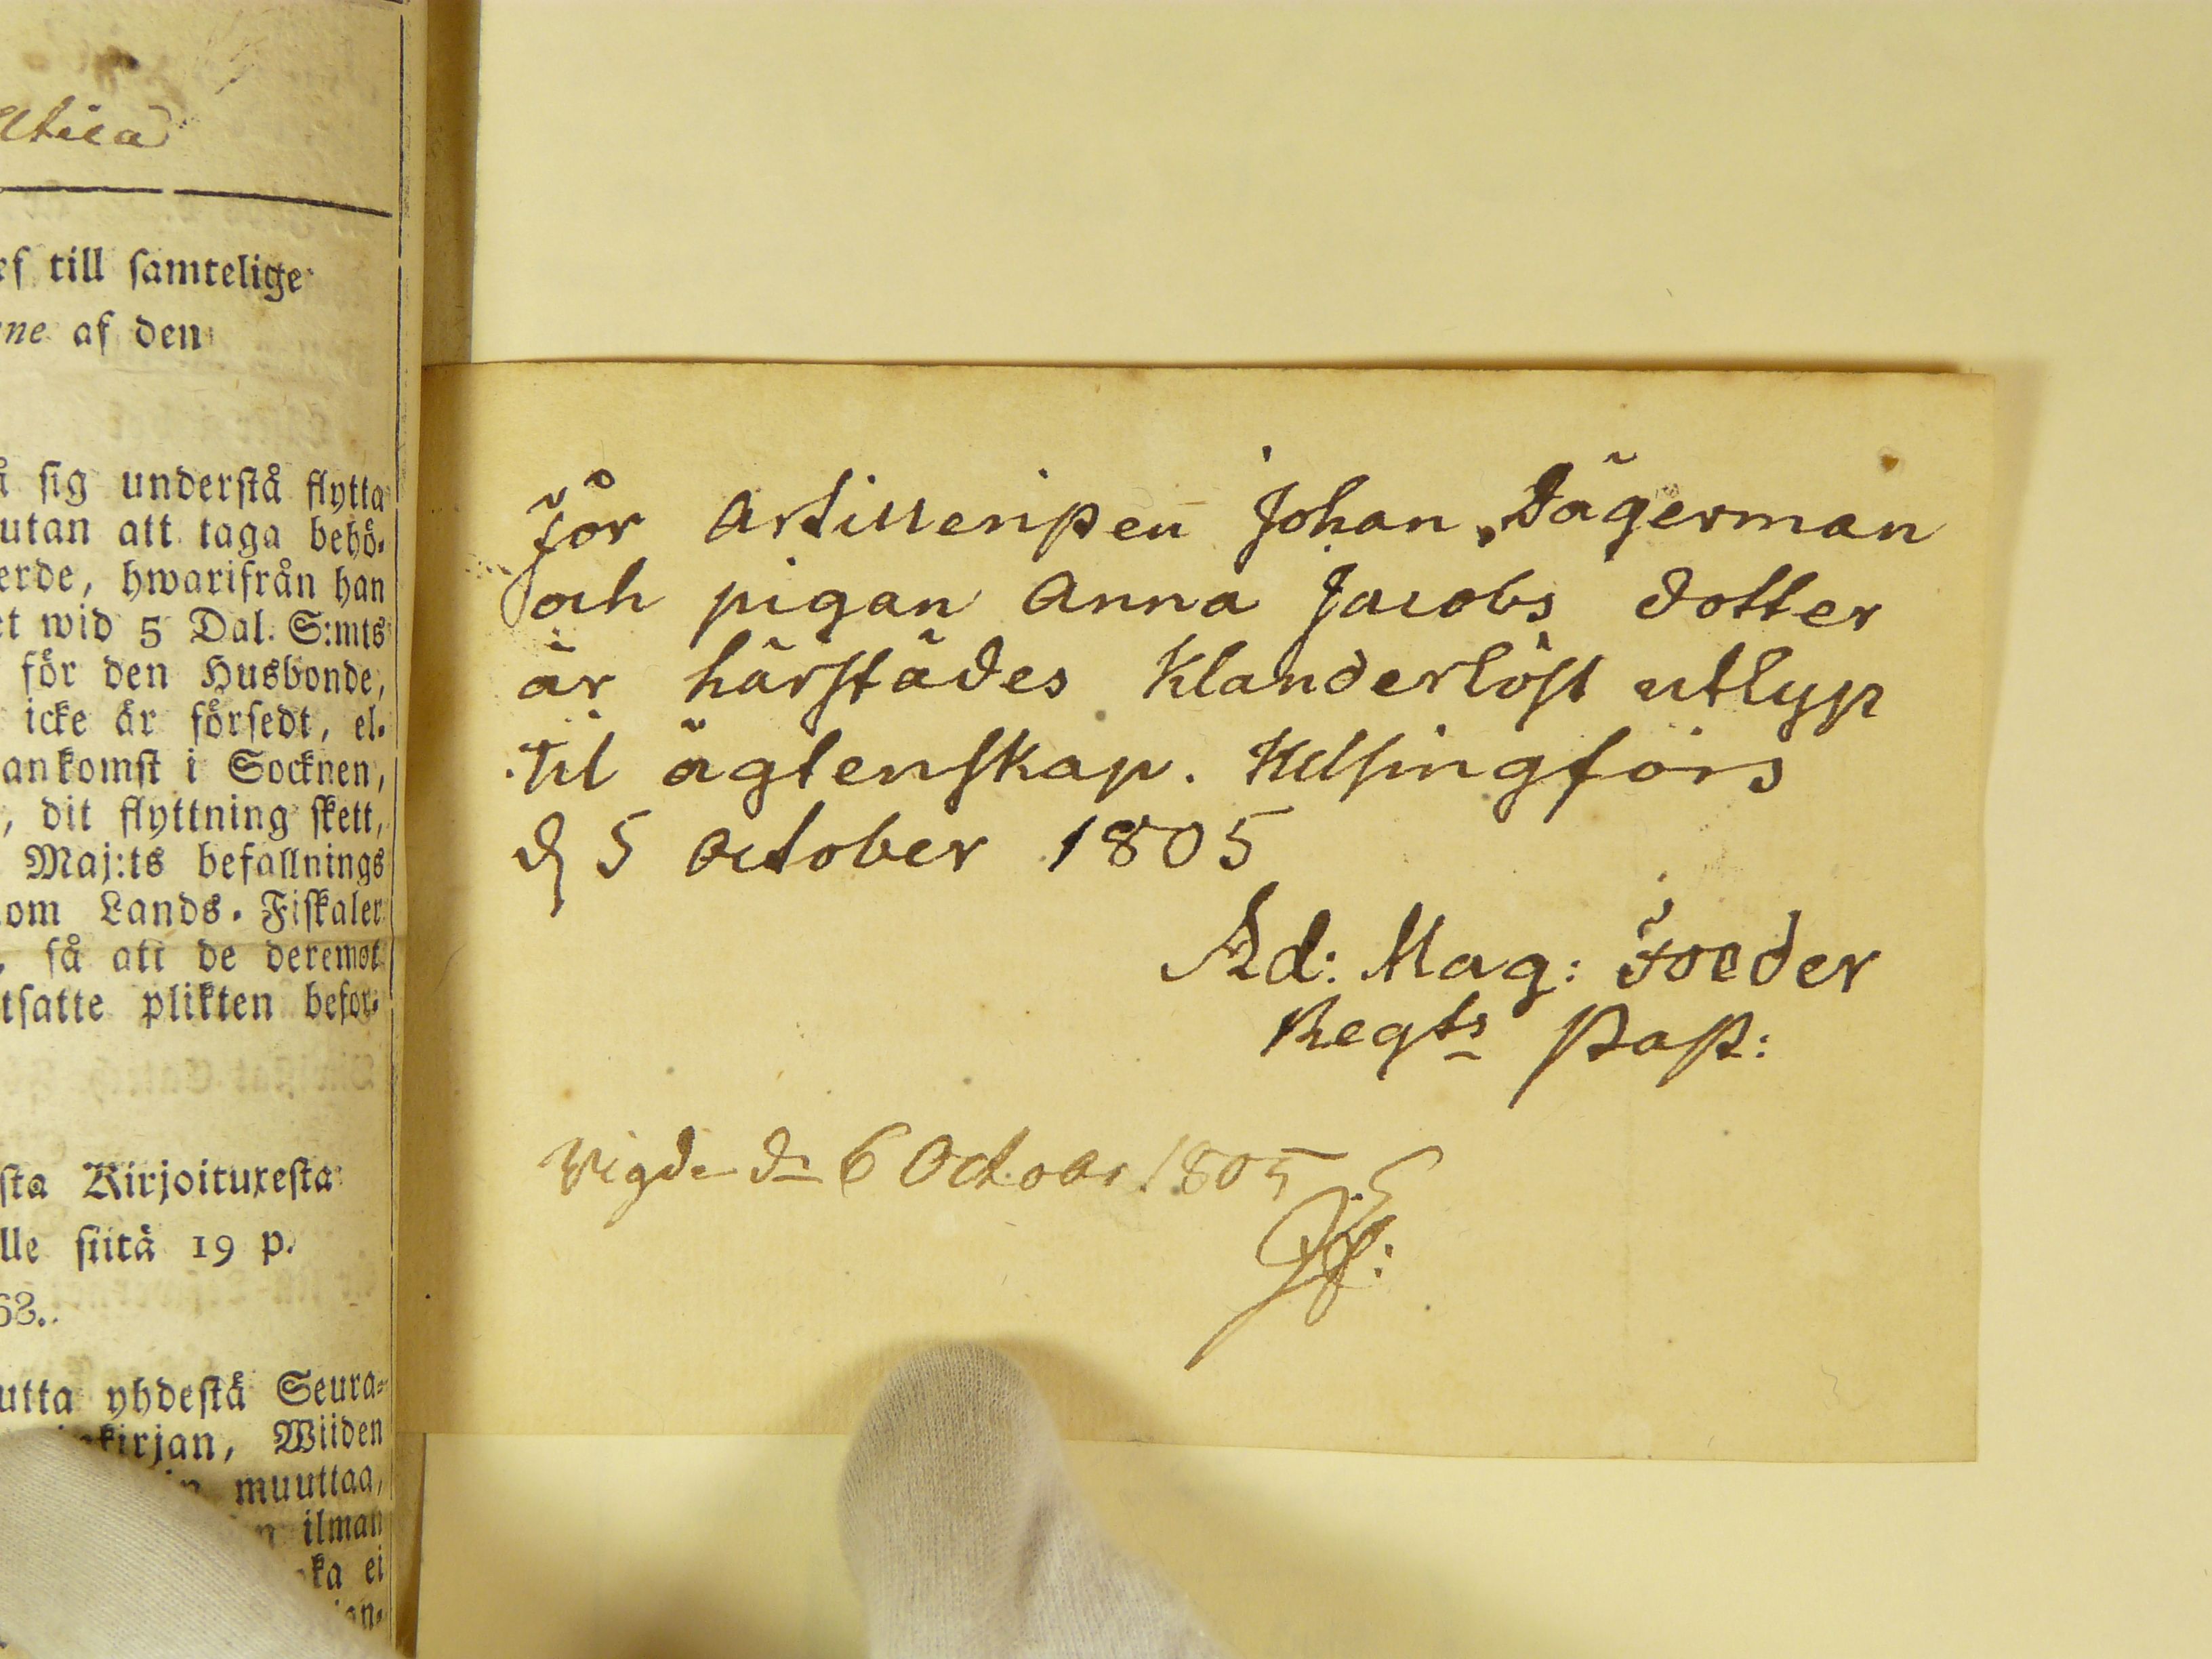 ltica
ef till samtelige
ne af den
å sig understå flytta
utan att taga behö-
erde, hwarifrån han
et wid 5 Dal. S:mts
för den Husbonde,
icke är försedt, el-
ankomst i Socknen,
, dit flyttning skett,
Maj:ts befallnings
om Lands-Fiskaler
, så att de deremot
tsatte plikten befor-
sta Kirjoituxesta
lle siitä 19 p.
68.
utta yhdestä Seura-
kirjan, Wiiden
muuttaa,
n ilman
ka ei
an-
för Artilleristen Johan Jägerman
och pigan Anna Jacobs dotter
är härstädes Klanderlöst utlyst
til ägtenskap. Helsingfors
d 5 October 1805
Ad: Mag: Foeder
Regts Past:
Vigde dn 6 Octobr 1805